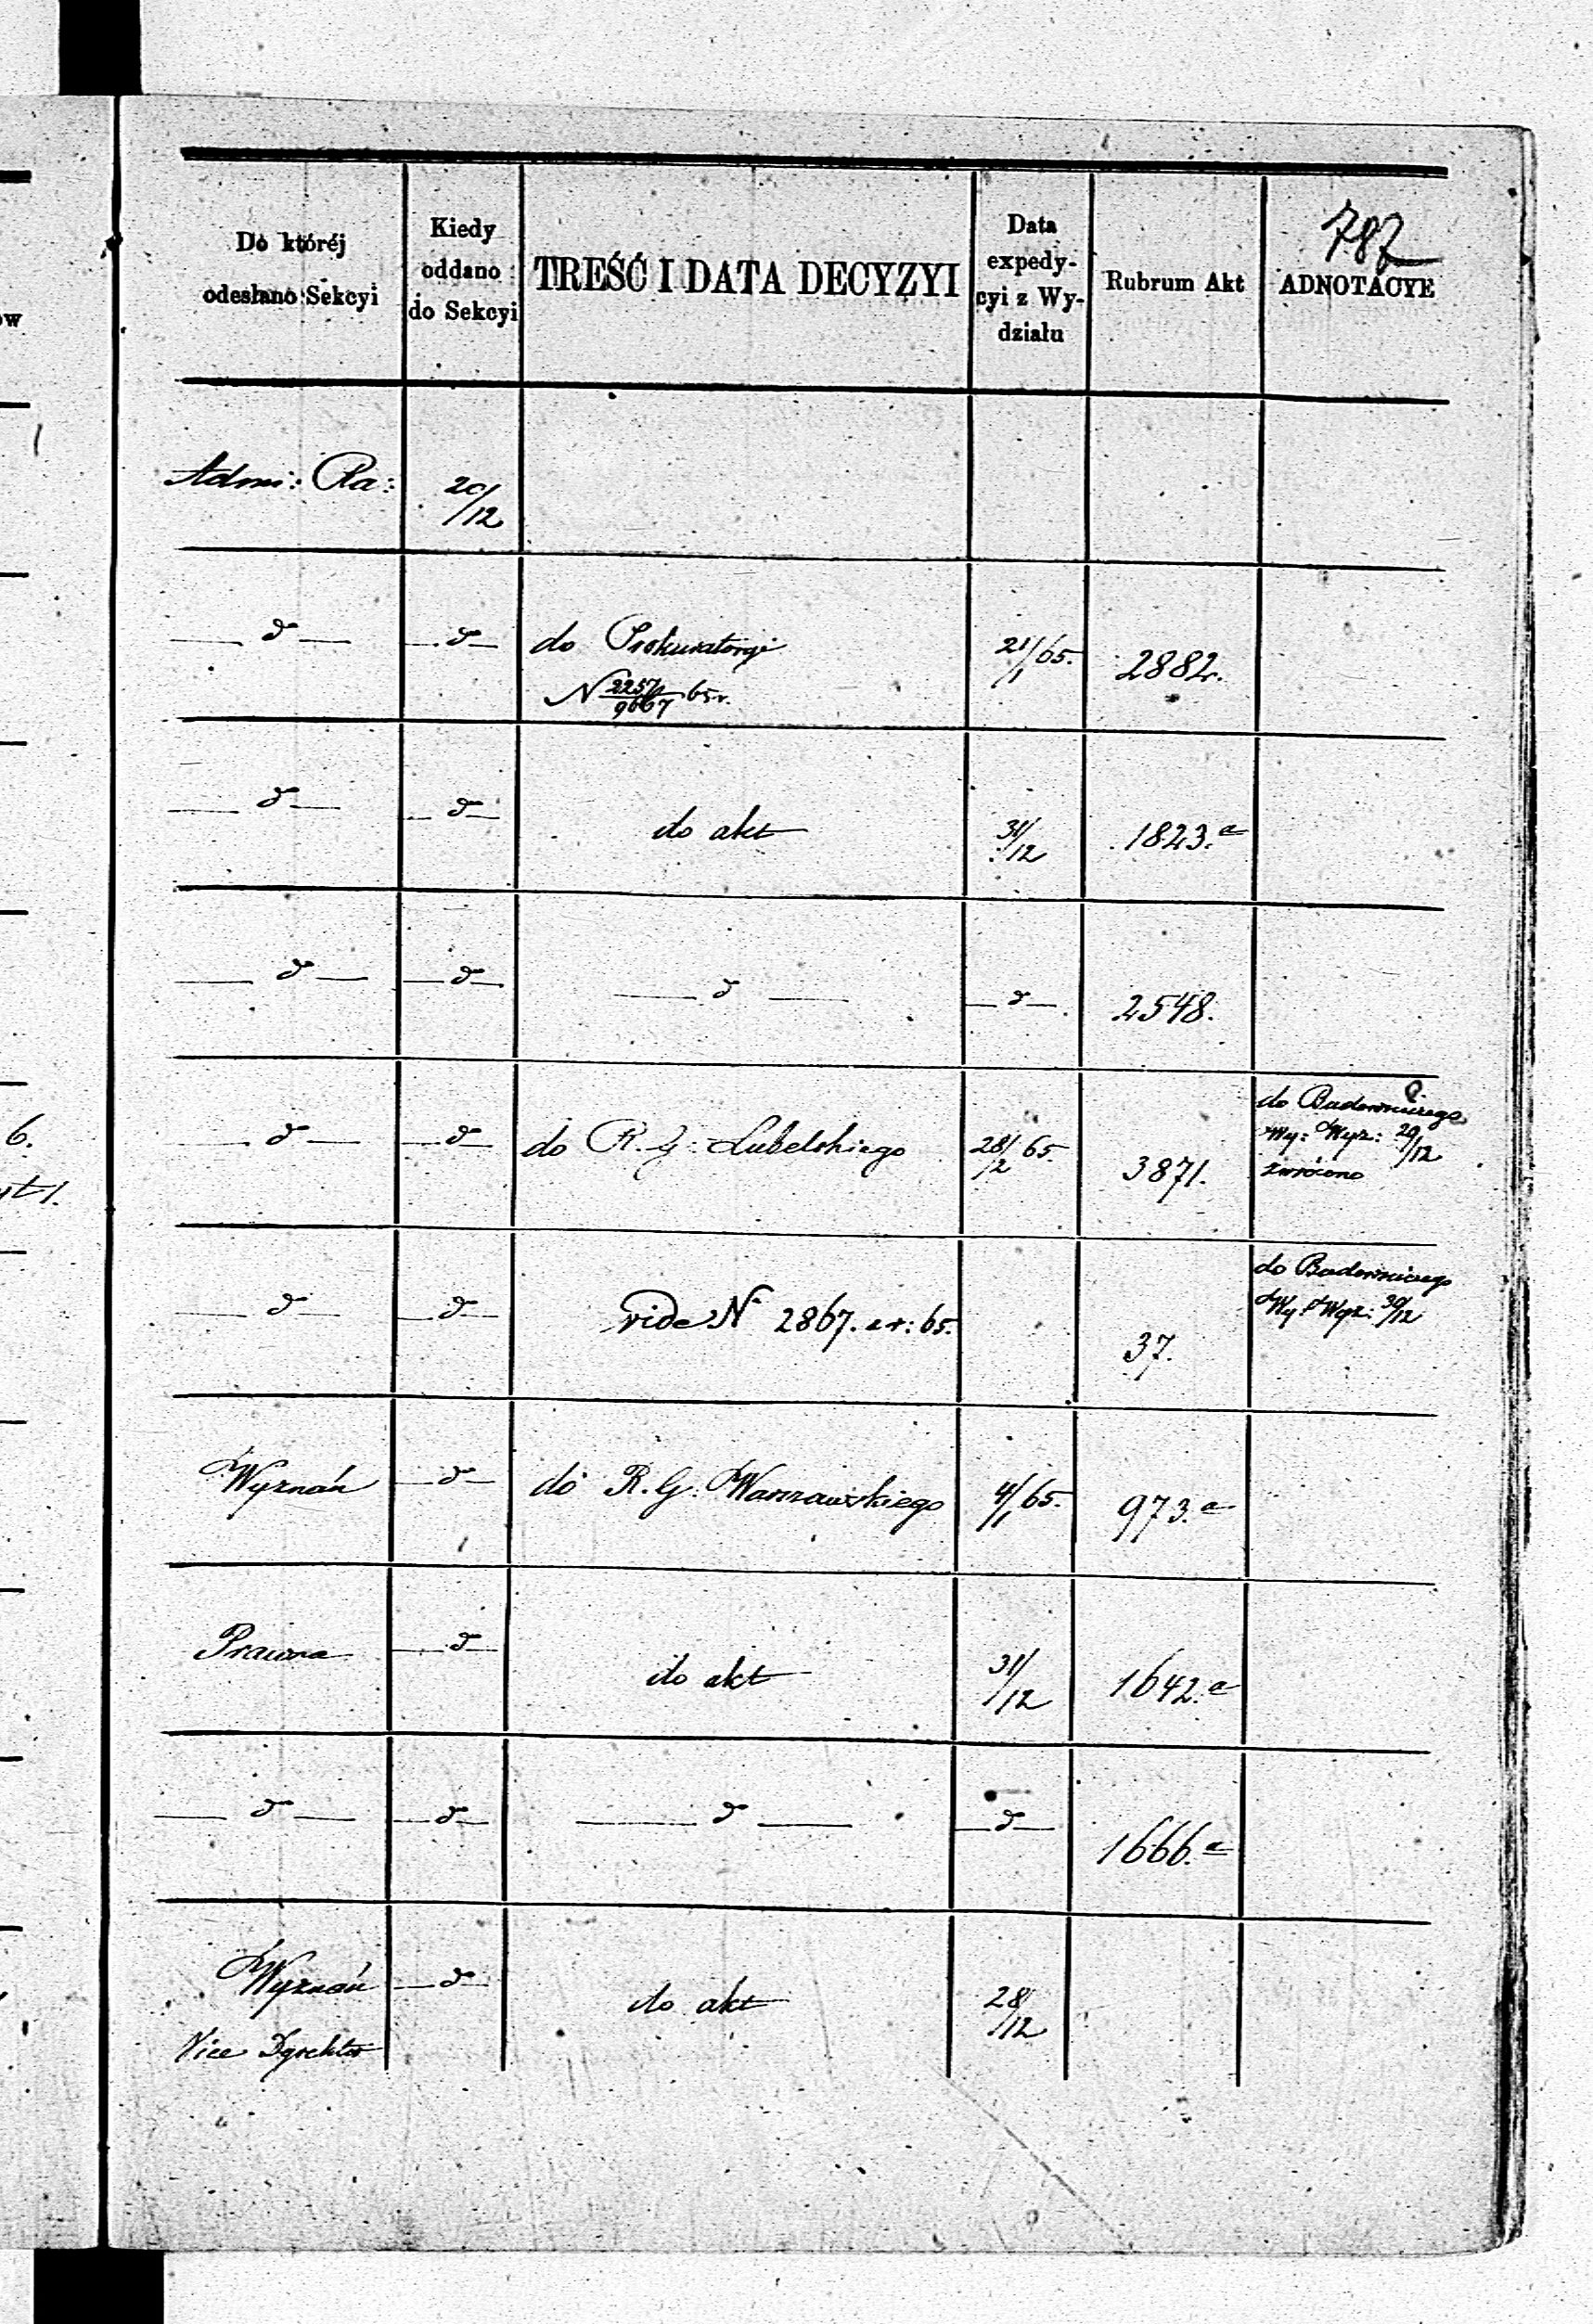 787
Do któréj
odesłano Sekcyi
Kiedy
oddano
do Sekcyi
TREŚĆ I DATA DECYZYI
Data
expedy-
cyi z Wy-
działu
Rubrum Akt
ADNOTACYE
ow
Admi: Ra: 20/12
d d do Prokuratoryi 21/1 65. 2882.
N 2257/9667 65 r.
d d do akt 31/12 1823.a
d d d d 2548.
d d do R. G. Lubelskiego 28/2 65. 3871. do Budowniczego
Wy: Wyz: 29/12
zwrócono
6.
d d vide N 2867. ar: 65. 37. do Budowniczego
Wy: Wyz: 30/12
Wyznań d do R. G. Warszawskiego 4/1 65. 973.a
Prawna d do akt 31/12 1642.a
d d d d 1666.a
Wyznań d do akt 28/12
Vice Dyrektor